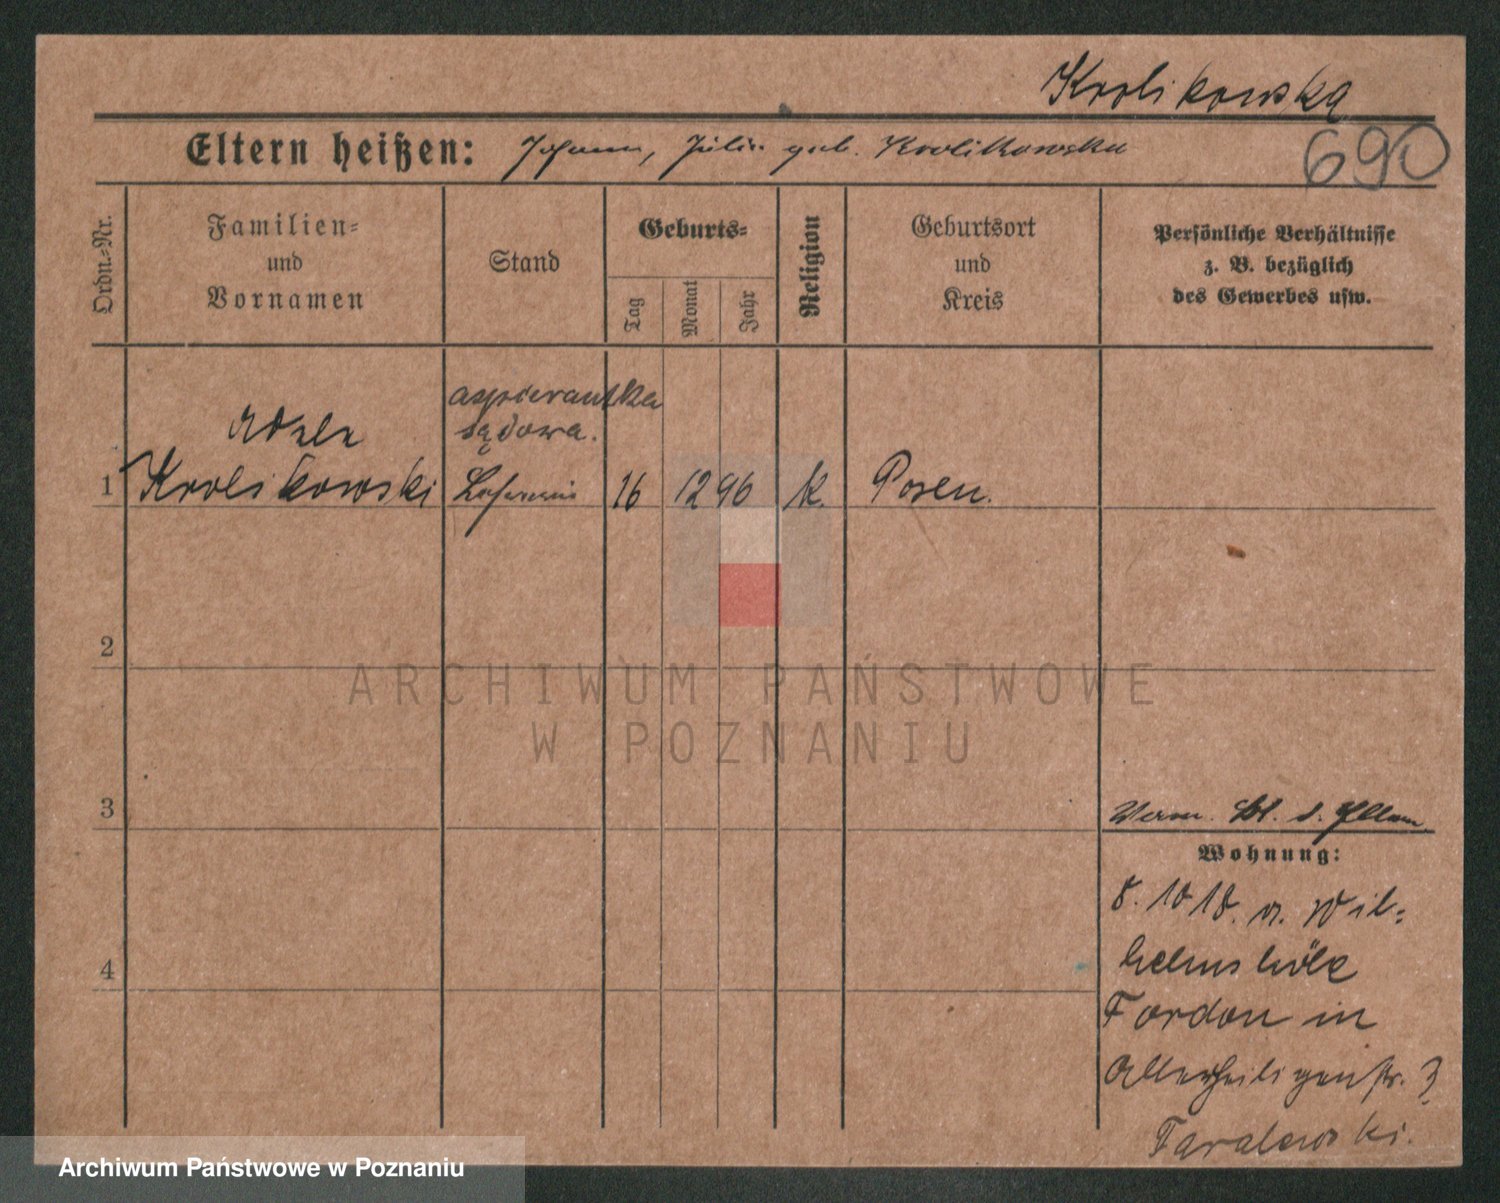 Krolikowska
690
Eltern heißen: Johann, Julie geb. Krolikowska
Ordn.=Nr.
Familien=
und
Vornamen
Stand
Geburts=
Tag
Monat
Jahr
Religion
Geburtsort
und
Kreis
Persönliche Verhältnisse
z. B. bezüglich
des Gewerbes usw.
aspirantka
sądowa.
1 Krolikowski Lehrerin 16 12 96 k. Posen.
2
ARCHIWUM PAŃSTWOWE
W POZNANIU
3
Wohnung:
8. 10 18. n. Wil=
helmshöhe
4
Fordon in
Allerheiligenstr. 3
Taralewski.
Archiwum Państwowe w Poznaniu